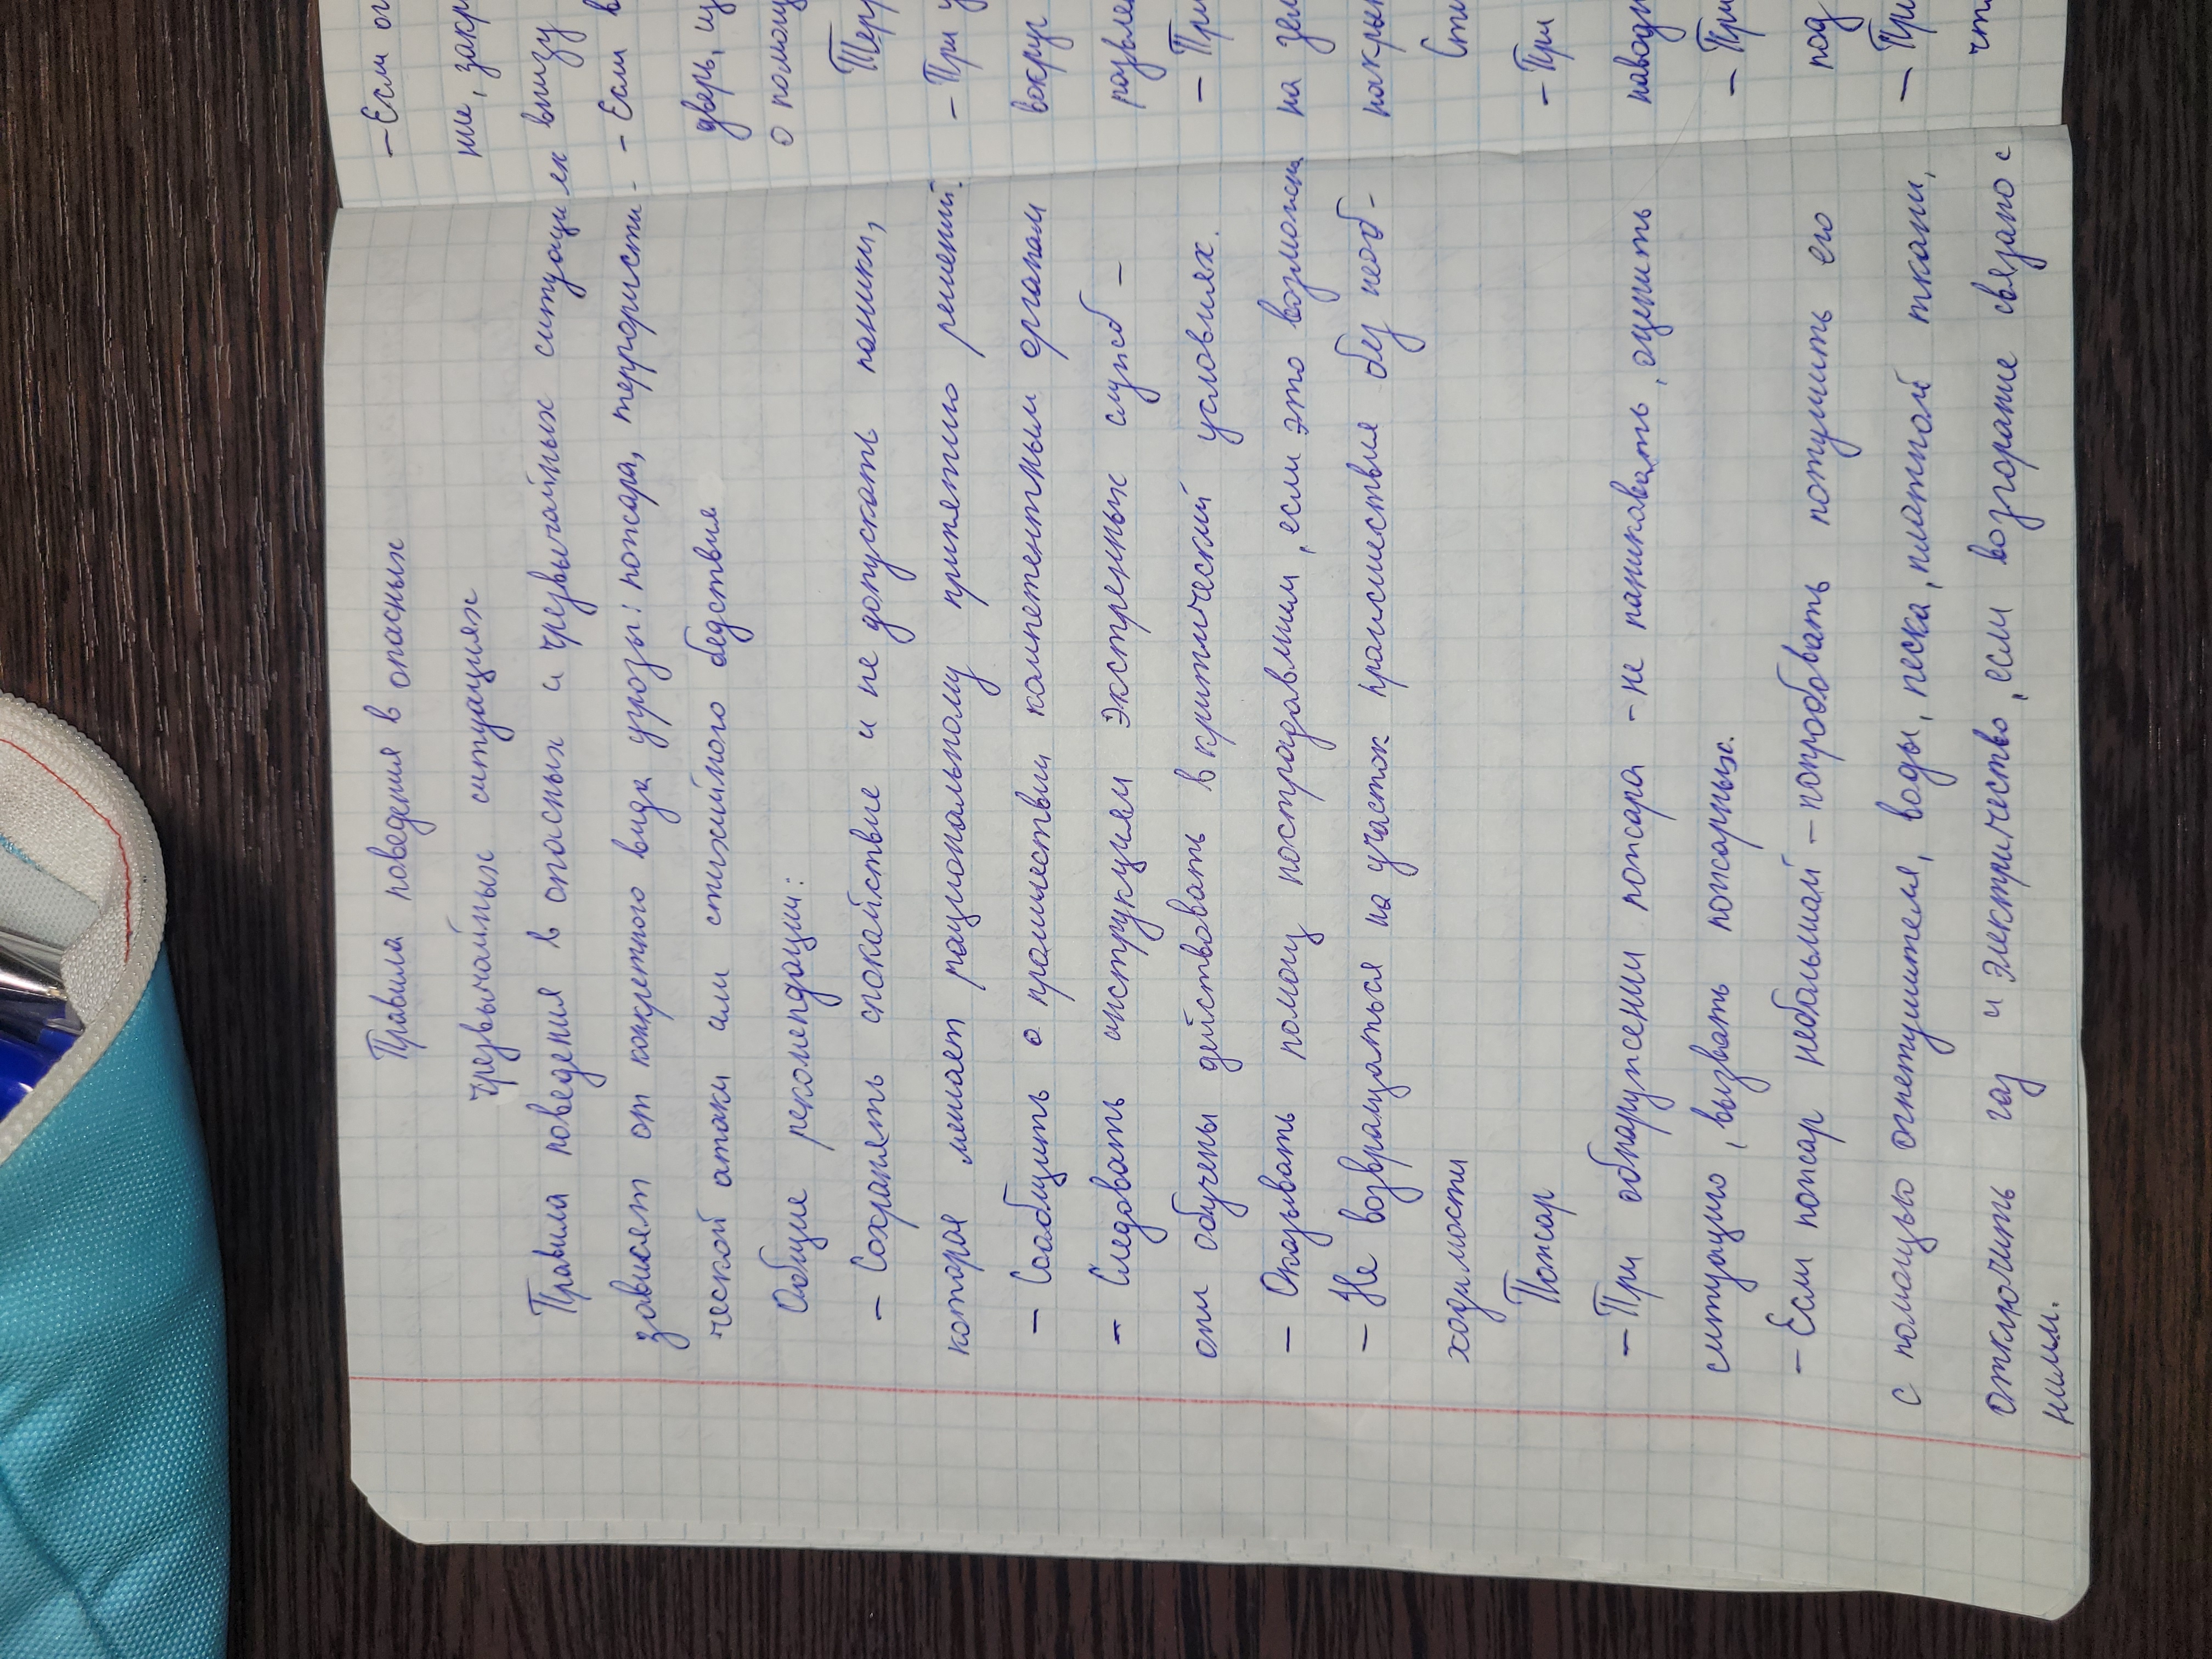 Правила поведения в опасных
чрезвычайных ситуациях
Правила поведения в опасных и чрезвычайных ситуациях
зависят от конкретного вида угрозы: пожара, террористи-
ческой атаки или стихийного бедствия
Общие рекомендации:
- Сохранять спокойствие и не допускать паники,
которая мешает рациональному принятию решений.
- Сообщить о происшествии компетентным органам
- Следовать инструкциям экстренных служб -
они обучены действовать в критический условиях.
- Оказывать помощ пострадавшим, если это возможно
- Не возвращаться на участок происшествия без необ-
ходимости
Пожар
- При обнаружении пожара - не паниковать, оценить
ситуацию, вызвать пожарных.
- Если пожар небольшой - попробовать потушить его
с помощью огнетушителя, воды, песка, плотной ткани,
отключить газ и электричество, если возгорание связано с
ними.
- Если ог
ние, закр
внизу
- Если в
дверь, из
о помощ
Терр
- При у
вокруг
развле
- При
на зем
накрыт
Сти
- При
наводн
- При
под
- При
чт